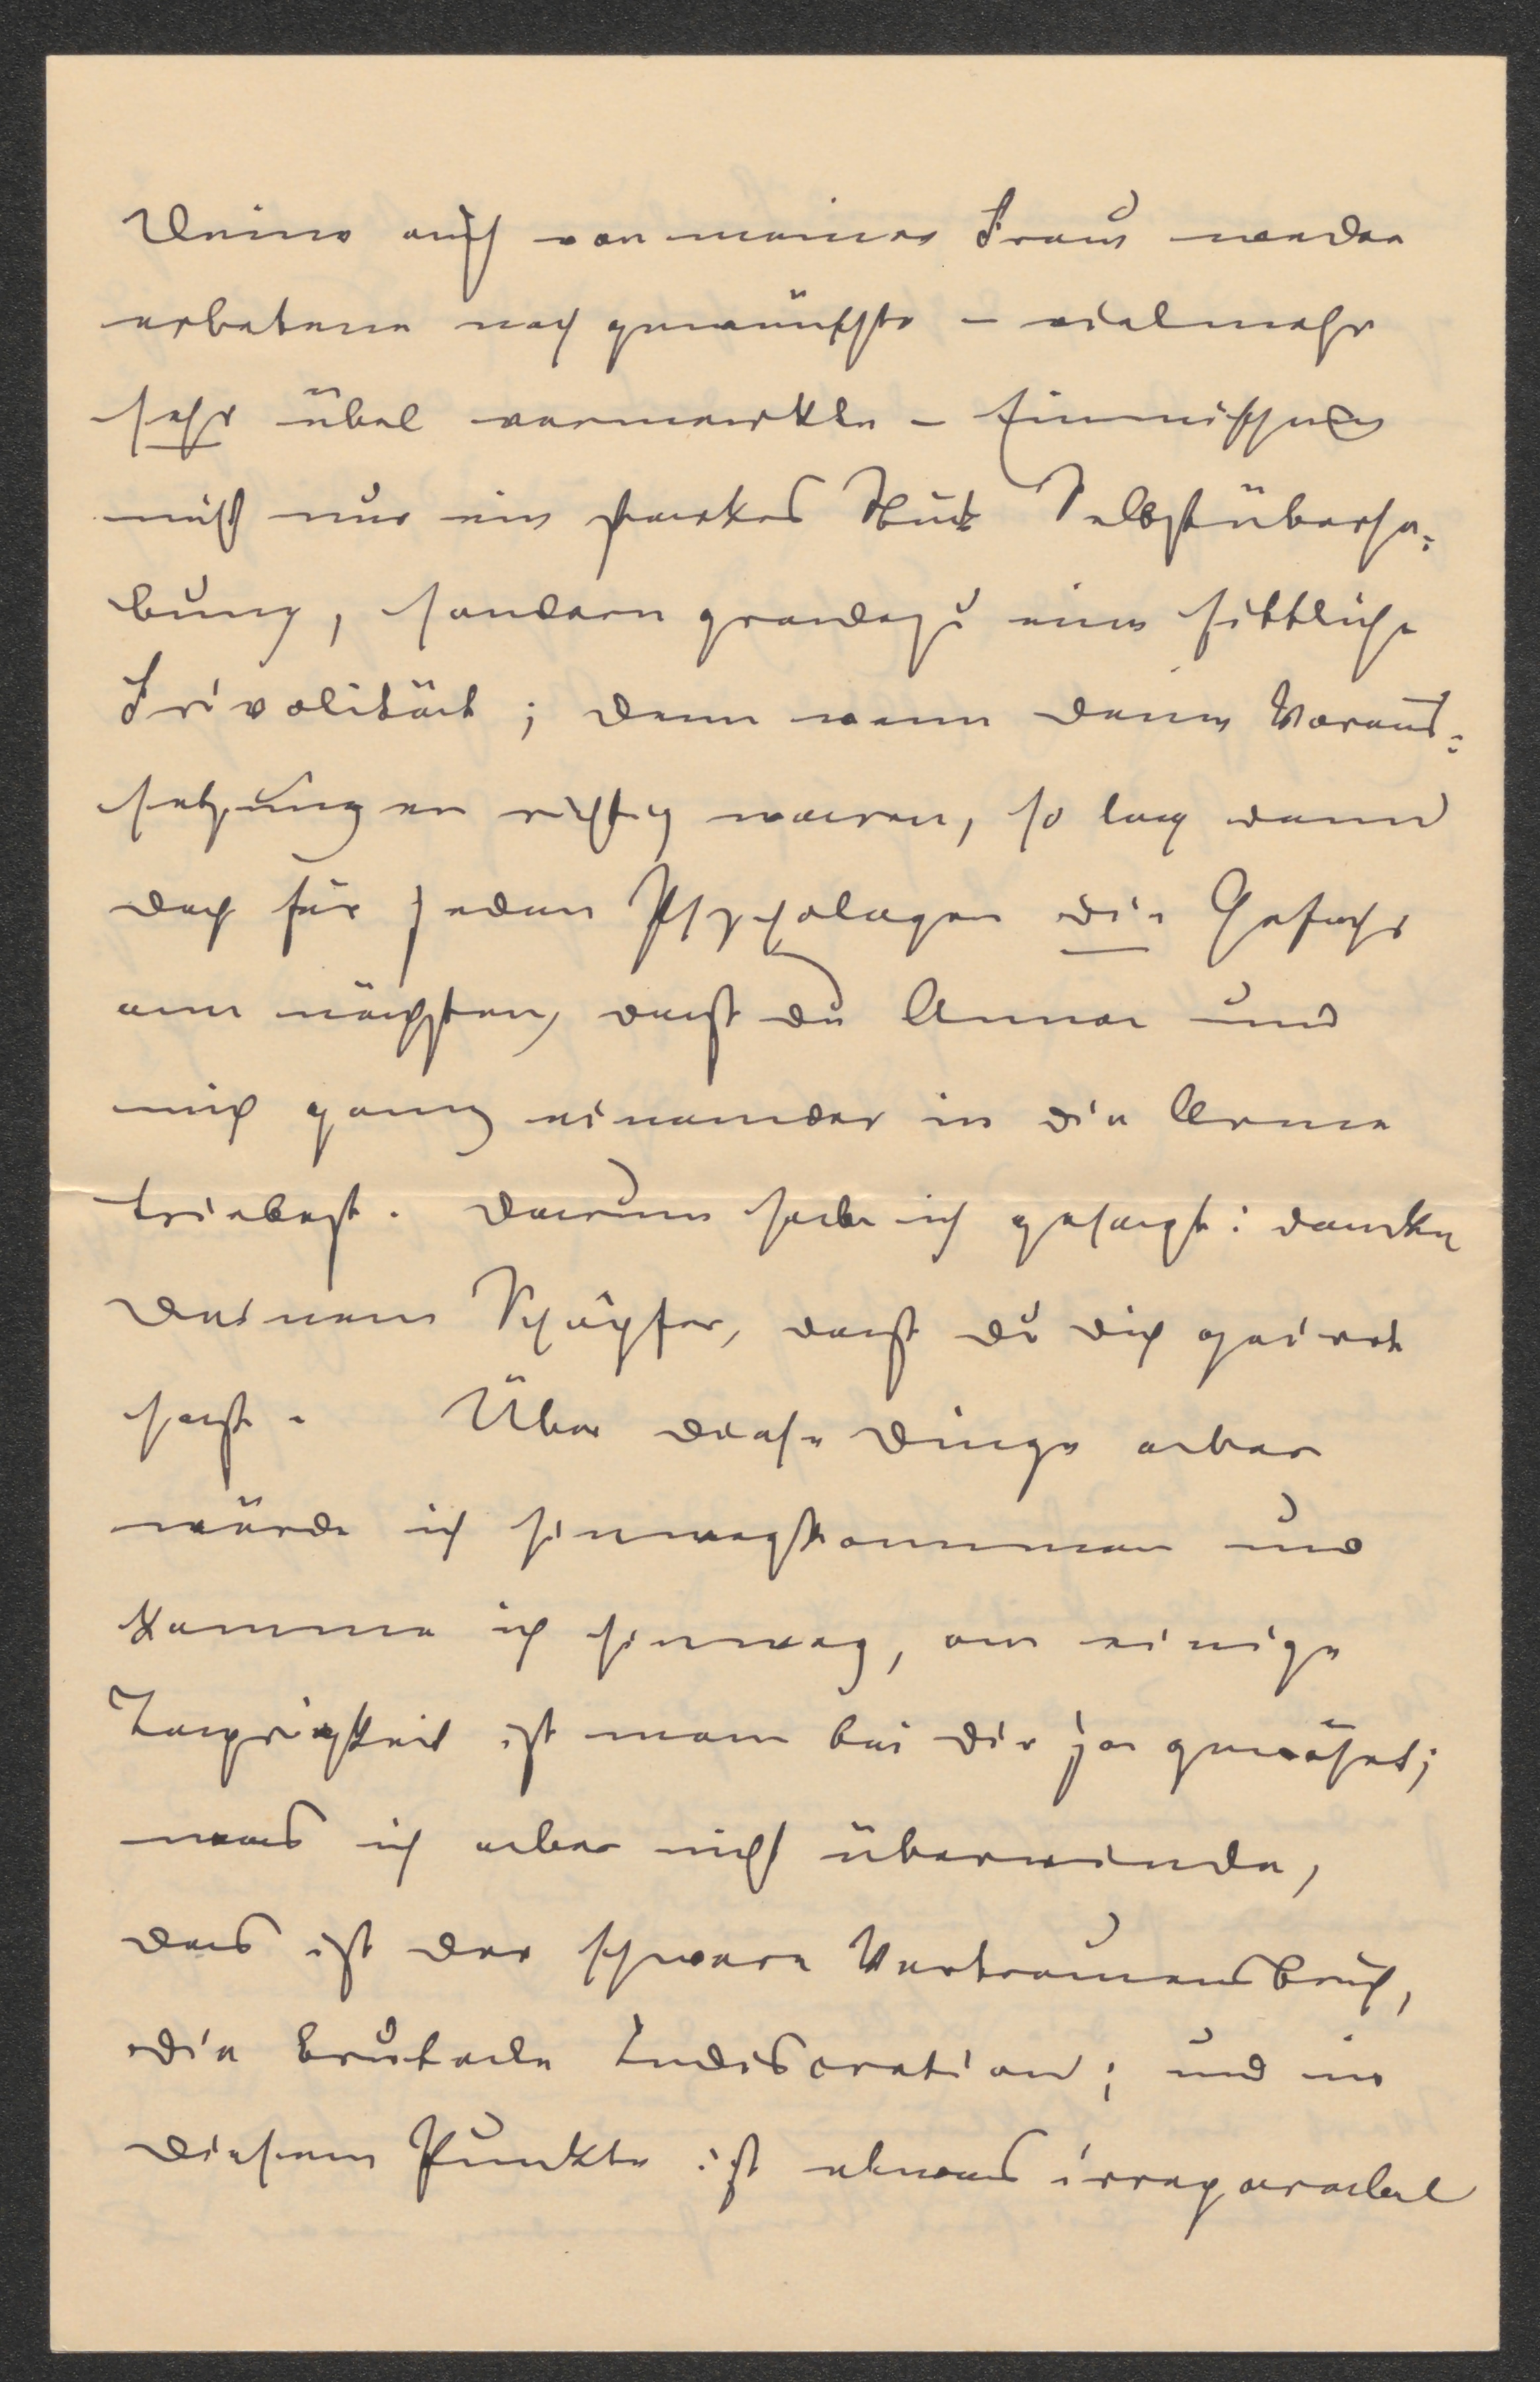 Deine auch von meiner Frau weder
erbetene noch gewünschte – vielmehr
sehr übel vermerkte – Einmischung
nicht nur ein starkes Stück Selbstüberhe-
bung, sondern gradezu eine sittliche
Frivolität; denn wenn deine Voraus-
setzungen richtig waren, so lag denn
doch für jeden Psychologen die Gefahr
am nächsten, daß du Anna und
mich ganz einander in die Arme
triebest. Darum habe ich gesagt: danke
deinem Schöpfer, daß du dich geirrt
hast. Über diese Dinge aber
würde ich hinwegkommen und
komme ich hinweg, an einige
Tapsigkeit ist man bei dir ja gewöhnt;
was ich aber nicht überwinde,
das ist der schwere Vertrauensbruch,
die brutale Indiscretion; und in
diesem Punkte ist etwas irreparabel